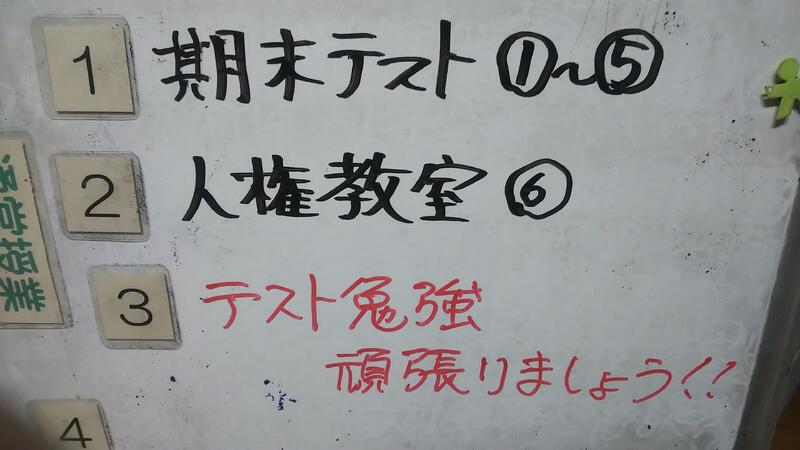 1 期末テスト ①~⑤
2 人権教室 ⑥
3 テスト勉強
頑張りましょう!!
4
通常授業